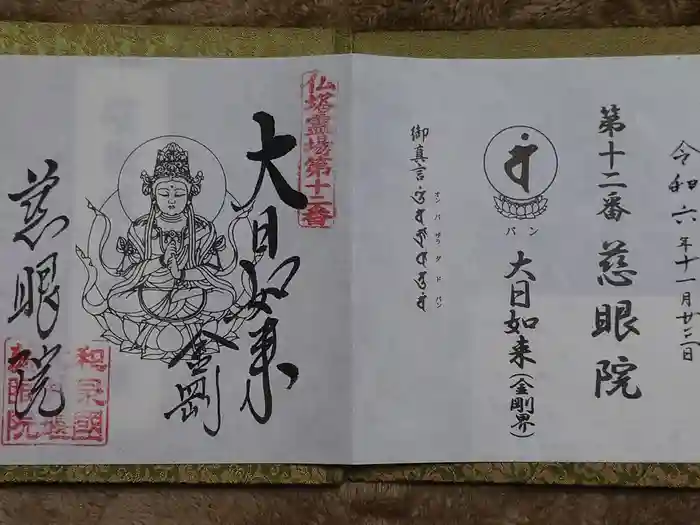 令和六年十一月廿二日
第十二番 慈眼院
バン
大日如来(金剛界)
御真言
オン バザラ ダド バン
仏塔霊場第十二番
大日如来
金剛
慈眼院